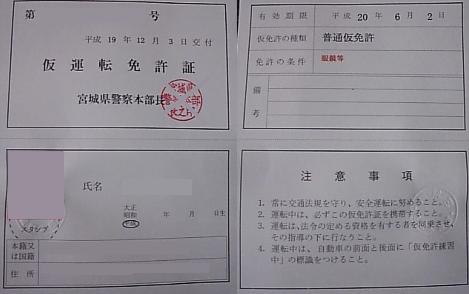 第 号
平成 19年 12月 3日交付
仮運転免許証
宮城県警察本部長
有効期限 平成 20年 6月 2日
仮免許の種類 普通仮免許
免許の条件 眼鏡等
備
考
氏名
大正
昭和
平成
年 月 日生
スタンプ
本籍又
は国籍
住所
注意事項
1. 常に交通法規を守り、安全運転に努めること。
2. 運転中は、必ずこの仮免許証を携帯すること。
3. 運転は、法令の定める資格を有する者を同乗させ、
その指導の下に行なうこと。
4. 運転中は、自動車の前面と後面に「仮免許練習
中」の標識をつけること。